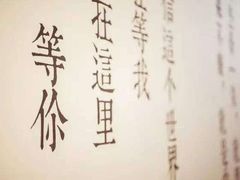 信這个世界
在等我
在這里
等你